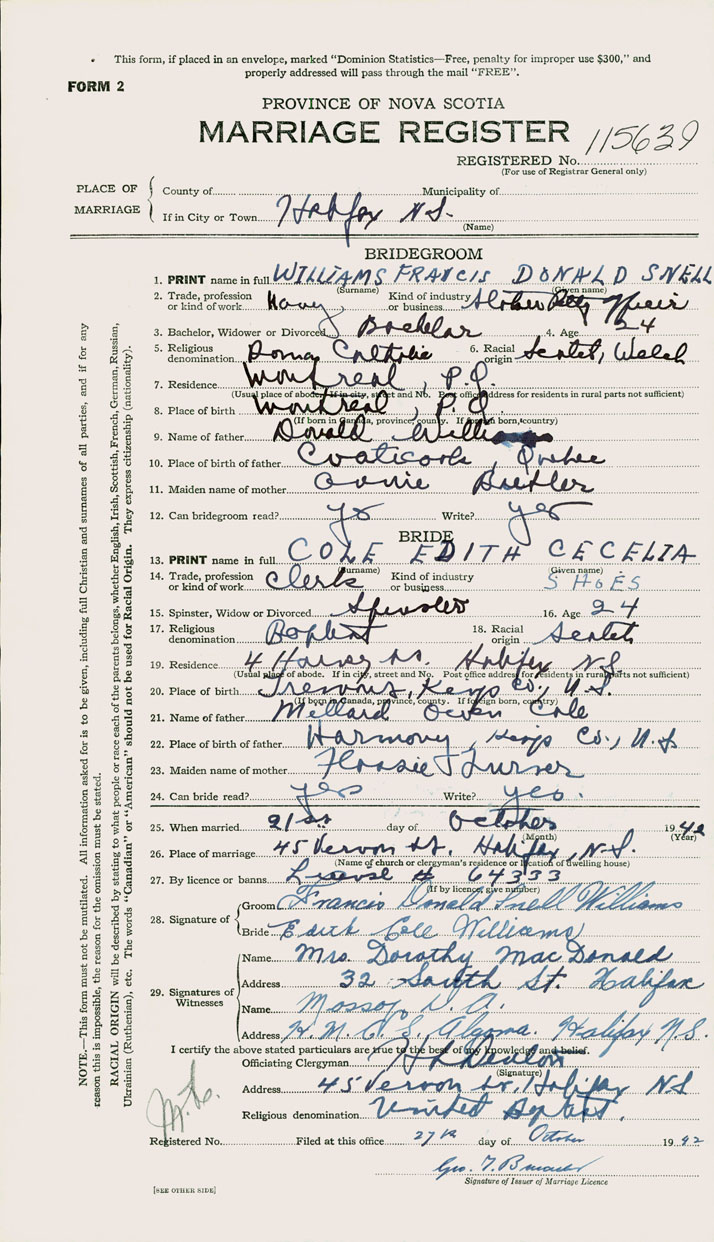 This form, if placed in an envelope, marked "Dominion Statistics—Free, penalty for improper use $300," and
properly addressed will pass through the mail "FREE".
FORM 2
PROVINCE OF NOVA SCOTIA
MARRIAGE REGISTER
115639
REGISTERED No.
(For use of Registrar General only)
PLACE OF MARRIAGE
County of Municipality of
If in City or Town Halifax N.S.
(Name)
BRIDEGROOM
1. PRINT name in full WILLIAMS FRANCIS DONALD SNELL
(Surname) (Given name)
2. Trade, profession or kind of work Navy Kind of industry or business Stoker Petty Officer
3. Bachelor, Widower or Divorced Bachelor 4. Age 24
5. Religious denomination Roman Catholic 6. Racial origin Scotch, Welch
7. Residence Montreal, P.Q.
(Usual place of abode. If in city, street and No. Post office address for residents in rural parts not sufficient)
8. Place of birth Montreal, P.Q.
(If born in Canada, province, county. If foreign born, country)
9. Name of father Donald Williams
10. Place of birth of father Coaticook, Quebec
11. Maiden name of mother Annie
12. Can bridegroom read? yes Write? yes
BRIDE
13. PRINT name in full COLE EDITH CECELIA
(Surname) (Given name)
14. Trade, profession or kind of work Clerk Kind of industry or business SHOES
15. Spinster, Widow or Divorced Spinster 16. Age 24
17. Religious denomination Baptist 18. Racial origin Scotch
19. Residence 4 St. Halifax N.S.
(Usual place of abode. If in city, street and No. Post office address for residents in rural parts not sufficient)
20. Place of birth Kings Co., N.S.
(If born in Canada, province, county. If foreign born, country)
21. Name of father Millard Owen Cole
22. Place of birth of father Harmony, Kings Co., N.S
23. Maiden name of mother Turner
24. Can bride read? yes Write? yes.
25. When married 21st day of October 1942
(Month) (Year)
26. Place of marriage 45 Vernon St. Halifax, N.S.
(Name of church or clergyman's residence or location of dwelling house)
27. By licence or banns License # 64333
(If by licence, give number)
28. Signature of
Groom Francis Donald Snell Williams
Bride Edith Cole Williams
29. Signatures of Witnesses
Name Mrs. Dorothy MacDonald
Address 32 South St. Halifax
Name Mossop
Address H.M.C.S. Algoma. Halifax N.S.
I certify the above stated particulars are true to the best of my knowledge and belief.
Officiating Clergyman
(Signature)
Address 45 Vernon St, Halifax NS
Religious denomination United Baptist.
Registered No. Filed at this office 27th day of October 1942
Signature of Issuer of Marriage Licence
[SEE OTHER SIDE]
NOTE.—This form must not be mutilated. All information asked for is to be given, including full Christian and surnames of all parties, and if for any
reason this is impossible, the reason for the omission must be stated.
RACIAL ORIGIN will be described by stating to what people or race each of the parents belongs, whether English, Irish, Scottish, French, German, Russian,
Ukrainian (Ruthenian), etc. The words "Canadian" or "American" should not be used for Racial Origin. They express citizenship (nationality).